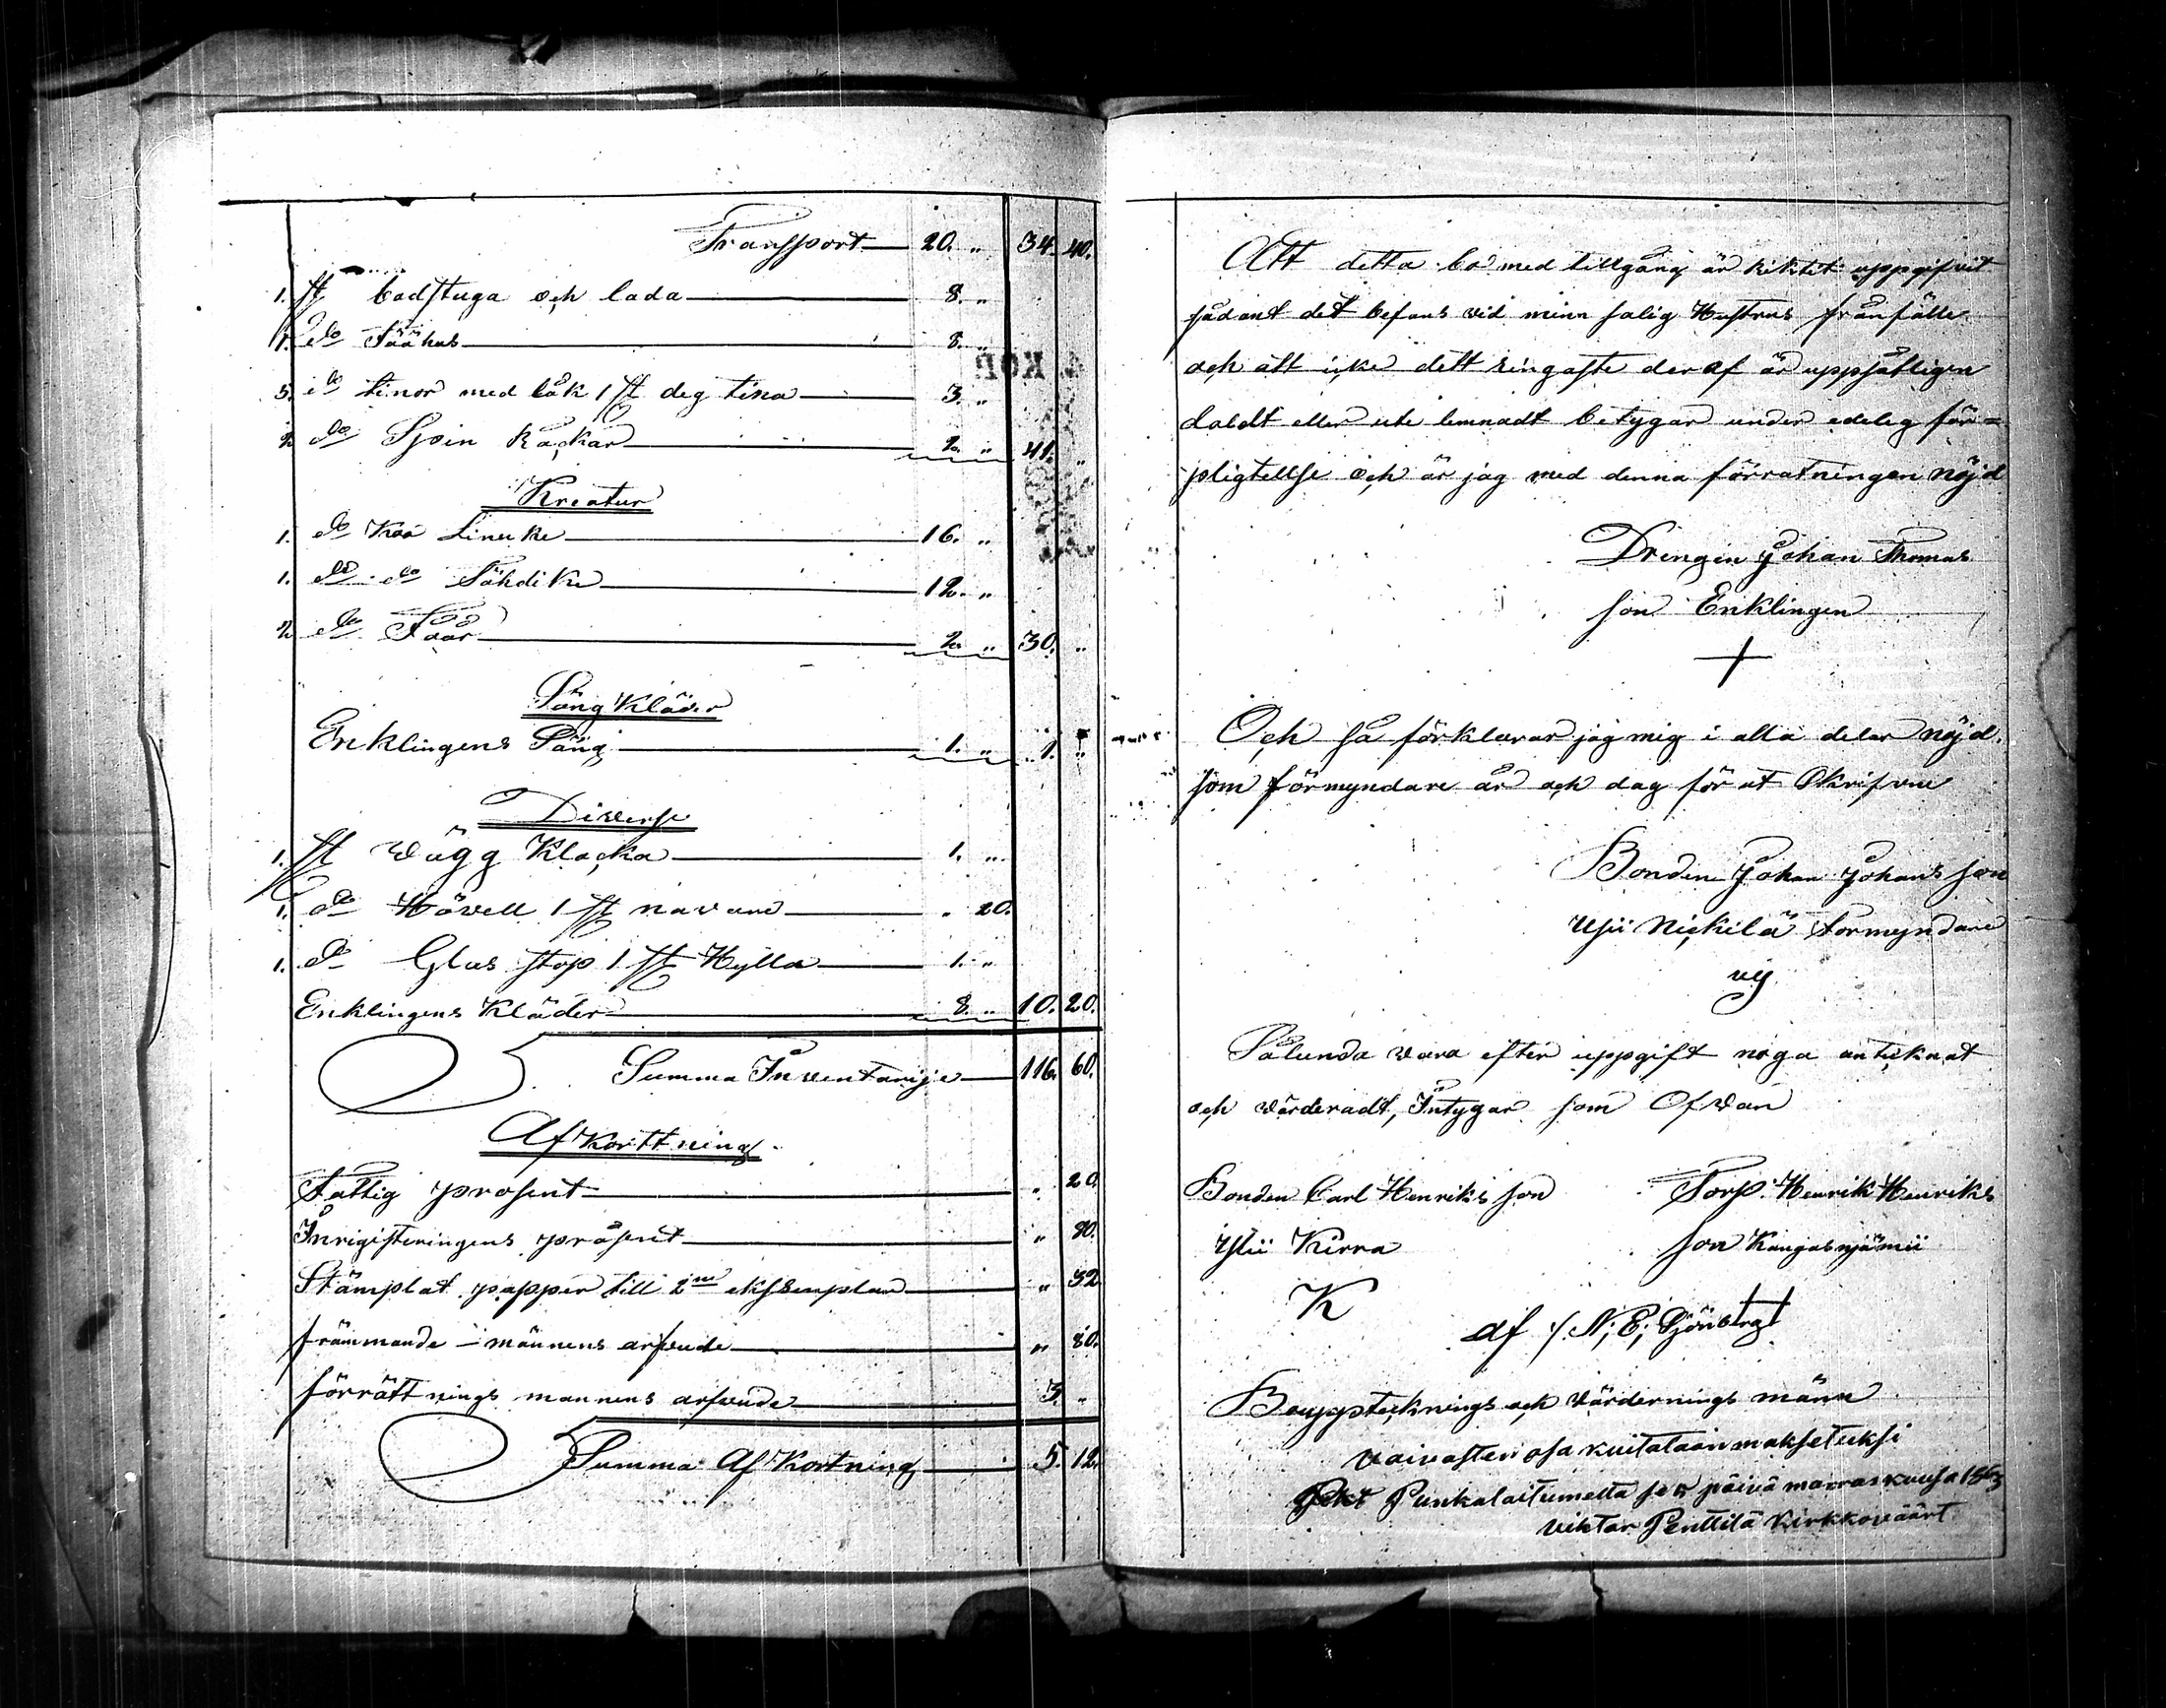 Transport 20. " 34. 40.
1. st badstuga och lada 8. "
1. do Fäähus 8. "
5. do tinor med låk 1 st deg tina 3. "
2 do Spin Råckar 2. " 41. "
Kreatur
1. do Koo Linuke 16. "
1. do do Tähdike 12. "
2 do Fåår 2 " 30. "
Säng Kläder
Enklingens Säng 1. " 1. "
Diverse
1. st Wägg Klocka 1. "
1. do Hövell 1 st navare " 20.
1. do Glas stop 1 st Hylla 1. "
Enklingens Kläder 8. " 10. 20.
Summa Inventarije 116. 60.
Afkorttning
Fattig prosent " 20.
Inrigisteringens prosent " 80.
Stämplat papper till 2ne eksemplar " 32
främmande männens arfvude " 80.
förrättnings mannens arfvude 3. "
Summa Af Kortning 5. 12.
Att detta bo med tillgång är riktit uppgifvit
sådant det befans vid minn salig Hustrus frånfälle
och att icke dett ringaste deraf är uppsåtligen
doldt eller ute lemnadt betygar under edelig för=
pligtellse och är jag med denna förratningen nöjd
Drengin Johan Thomas
son Enklingen
+
Och så förklarar jag mig i alla delar nöjd.
som förmyndare år och dag för ut Skrifvne
Bonden Johan Johans son
Ysii Nickilä Formyndare
Sålunda vara efter uppgift noga antecknat
och värderadt, Intygar som Ofvan
Bonden Carl Henriks son Torp. Henrik Henriks
Ylii Kirra son Kangasnjämii
K
af / N; E; Sjöndrgt
Boupptecknings och värdernings männ
vaivasten osa kuitataan maksetuksi
Punkalaitumella se päivä marraskuusa 1863
Viktar Penttilä Kirkkoväärt